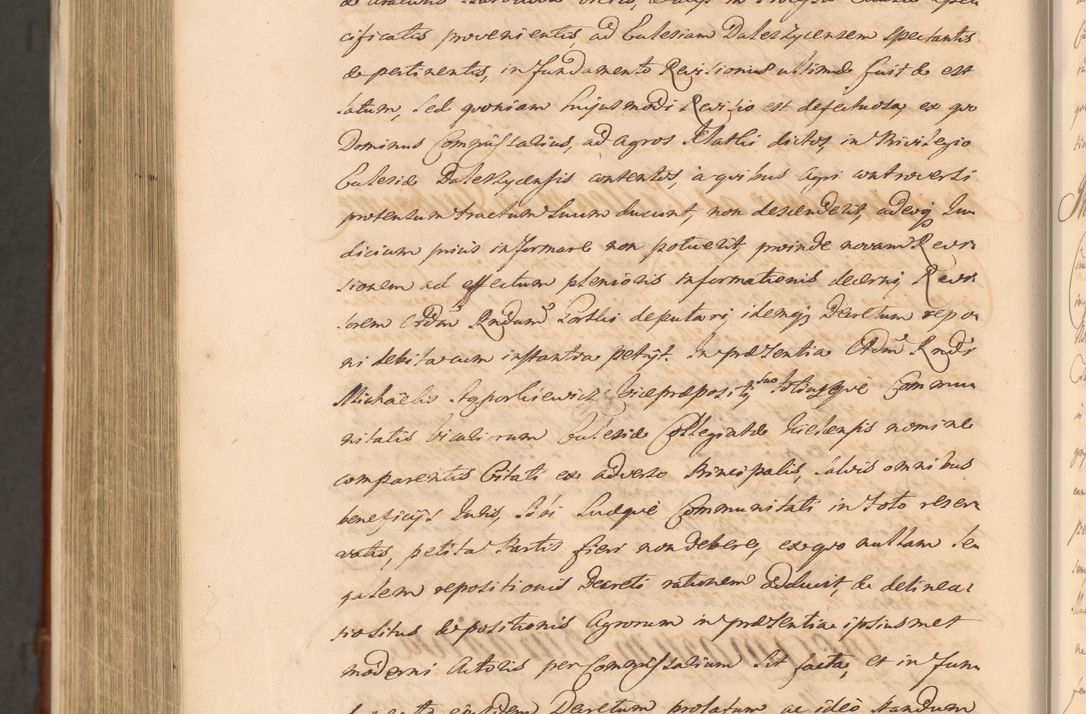 cificatis provenientis, ad Eulesiam Daleszycensem spectantis
& pertinentis, in fundamento Revisionis ultimæ fuit & est
latum, sed quoniam hujusmodi Revisio est defectuosa, ex quo
Dominus Comissarius, ad agros dictos, in Privilegio
Eulesiæ Daleszycensis contentos, a quibus agri controversi
protensum tractum suum ducunt, non descenderit, adeoq Ju
dicium prius informare non potuerit, proinde novam Revi
sionem ad effectum plenioris informationis decerni Revi
sorem deputari idemq Decretum repo
ni debita cum instantia petijt. In præsentia Adm Rndi
Michaelis Vicepræpositi suo totiusque Commu
nitatis Eulesiæ Collegiatæ Kielensis nomine
comparentis Citati ex adverso Principalis, salvis omnibus
beneficijs Juris, sibi suæque Communitati in toto reser
vatis, petita Partis fieri non debere, ex quo nullam le
galem repositionis Decreti rationem adducit, & delinea
tio situs & positionis Agrorum in præsentia ipsiusmet
moderni Actoris per Comissarium sit facta, et in fun
Decretum prolatum ac ideo standum